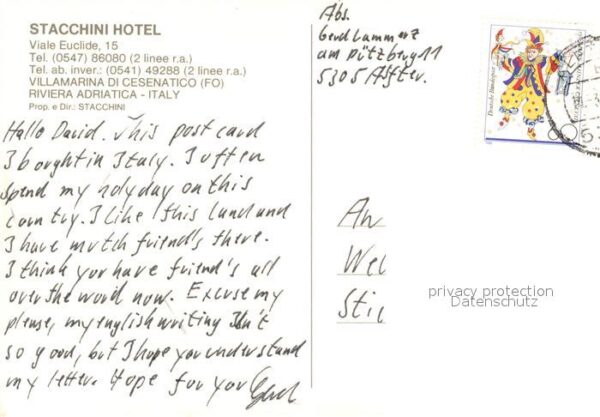 STACCHINI HOTEL
Viale Euclide, 15
Tel. (0547) 86080 (2 linee r.a.)
Tel. ab. inver.: (0541) 49288 (2 linee r.a.)
VILLAMARINA DI CESENATICO (FO)
RIVIERA ADRIATICA - ITALY
Prop. e Dir.: STACCHINI
Hallo David. This post card
I bought in Italy. I often
spend my holyday on this
country. I like this land and
I have mutch friend's there.
I think you have friend's all
over the word now. Excuse my
please, my english writing Isn't
so good, but I hope you understand
my letter. Hope for you Gerd
Abs.
Gerd Lammerz
am Pützberg 11
5305 Alfter.
Deutsche Bundespost
60
An
Wel
Stil
privacy protection
Datenschutz